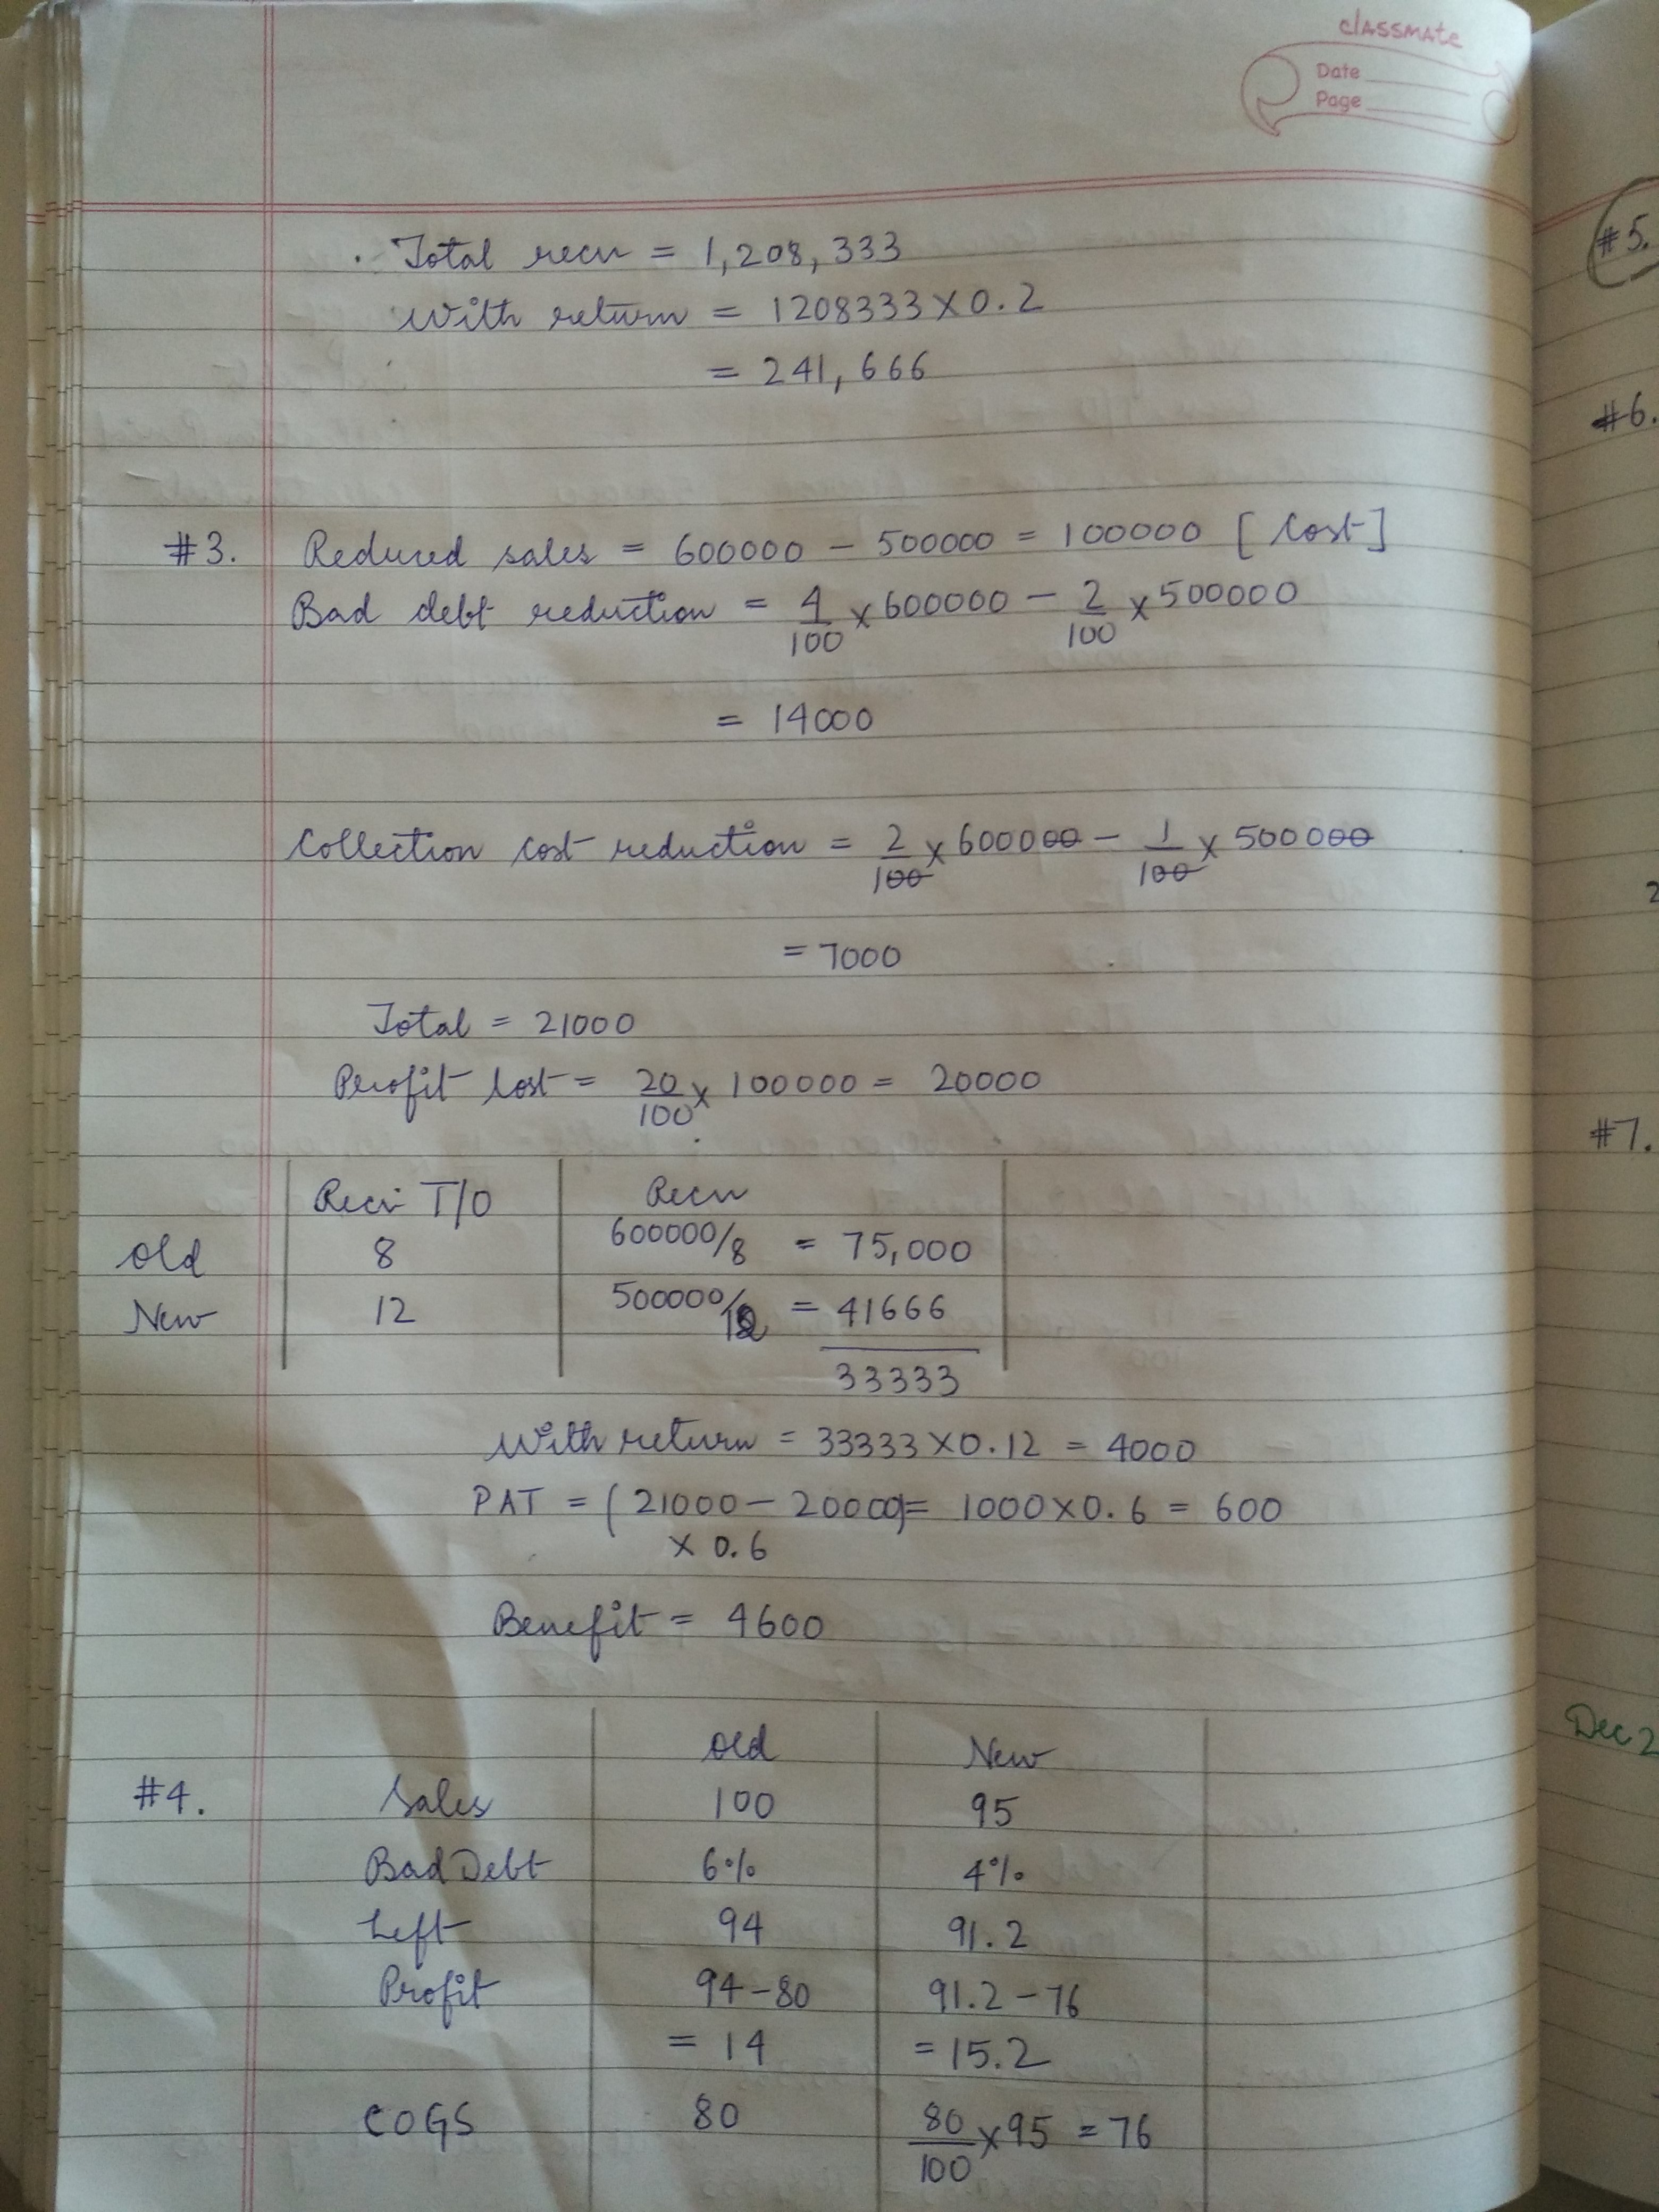 classmate
Date
Page
Total recv = 1,208,333
With return = 1208333 × 0.2
= 241,666
#3. Reduced sales = 600000 - 500000 = 100000 [Cost]
Bad debt reduction = 4/100 × 600000 - 2/100 × 500000
= 14000
Collection cost reduction = 2/100 × 600000 - 1/100 × 500000
= 7000
Total = 21000
Profit lost = 20/100 × 100000 = 20000
Recv T/O Recv
Old 8 600000/8 = 75,000
New 12 500000/12 = 41666
33333
With return = 33333 × 0.12 = 4000
PAT = (21000 - 20000) = 1000 × 0.6 = 600
× 0.6
Benefit = 4600
Old New
#4. Sales 100 95
Bad Debt 6% 4%
Left 94 91.2
Profit 94-80 91.2-76
= 14 = 15.2
COGS 80 80/100 × 95 = 76
#5.
#6.
2
#7.
Dec 2